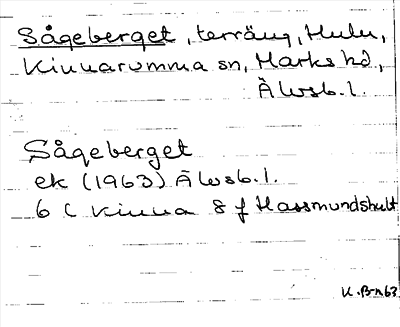 Sågeberget, terräng, Hulu,
Kinnarumma sn, Marks hd,
Älvsb. l.
Sågeberget
ek (1963) Älvsb. l.
6 C Kinna 8 f Hassmundshult
K. B-n 63